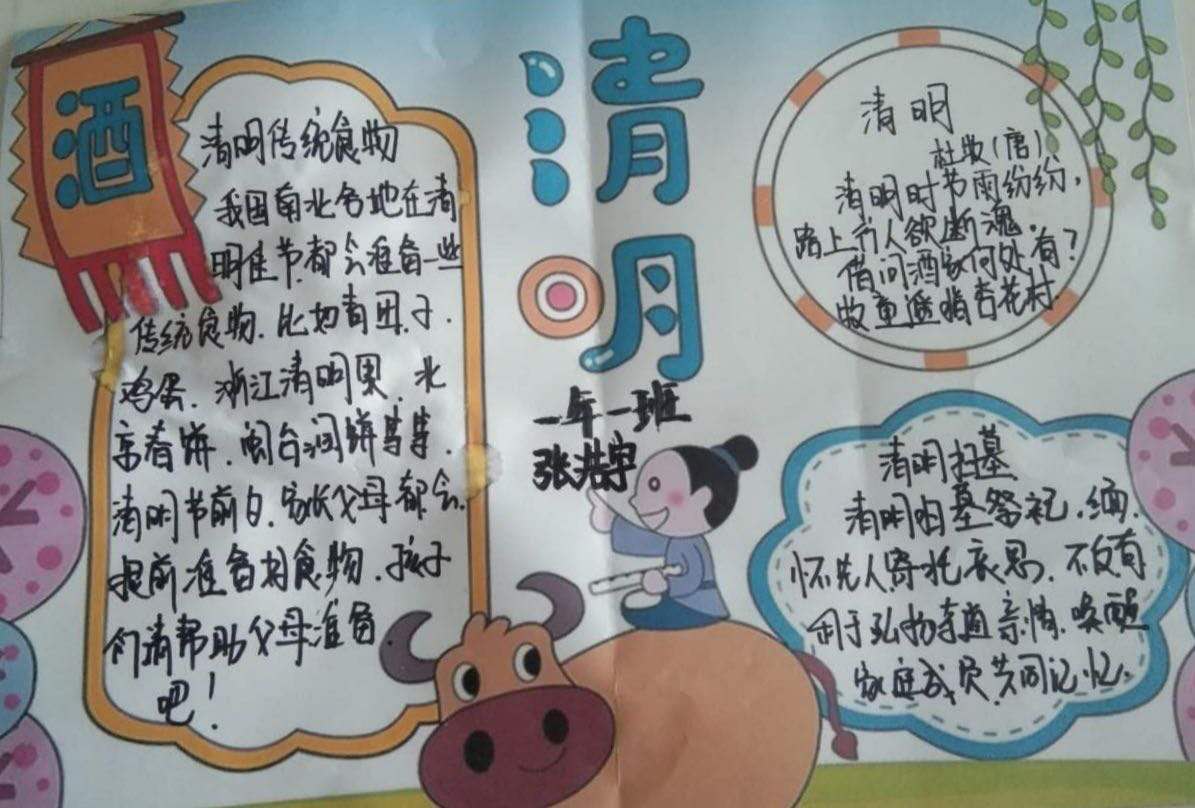 酒
清明传统食物
我国南北各地在清
明佳节都会准备一些
传统食物.比如青团子.
鸡蛋.浙江清明果.北
京春饼.闽台润饼等等.
清明节前日.家长父母都会.
提前准备好食物.孩子
们请帮助父母准备
吧!
清明
一年一班
张浩宇
清明
杜牧(唐)
清明时节雨纷纷,
路上行人欲断魂.
借问酒家何处有?
牧童遥指杏花村.
清明扫墓
清明由墓祭祀.缅.
怀先人寄托哀思.不仅有
利于弘扬孝道亲情.唤醒
家庭成员共同记忆.